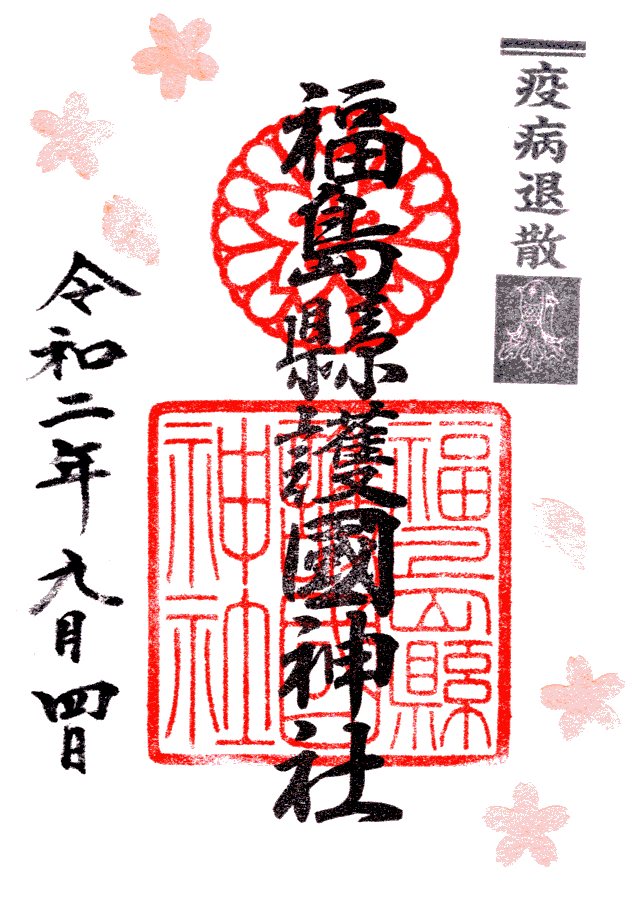 疫病退散
福島縣護國神社
福島縣護國神社
令和二年九月四日